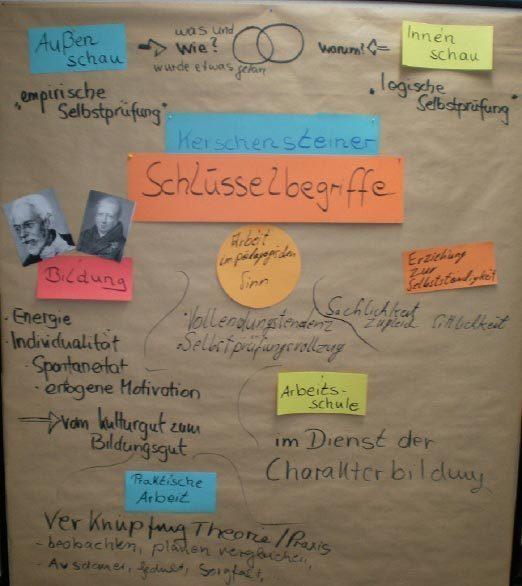 Außen
schau
was und
Wie?
wurde etwas getan
warum?
Innen
schau
"empirische
Selbstprüfung"
"logische
Selbstprüfung"
Kerschensteiner
Schlüsselbegriffe
Bildung
Arbeit
im pädagogischen
Sinn
Erziehung
zur
Selbstständigkeit
· Energie
· Individualität
· Spontanetät
· erzogene Motivation
vom Kulturgut zum
Bildungsgut
· Vollendungstendenz
· Selbstprüfungsvollzug
Sachlichkeit
zugleich Sittlichkeit
Arbeits-
schule
im Dienst der
Charakterbildung
Praktische
Arbeit
Verknüpfung Theorie/Praxis
- beobachten, planen vergleichen,
- Ausdauer, Geduld, Sorgfalt,